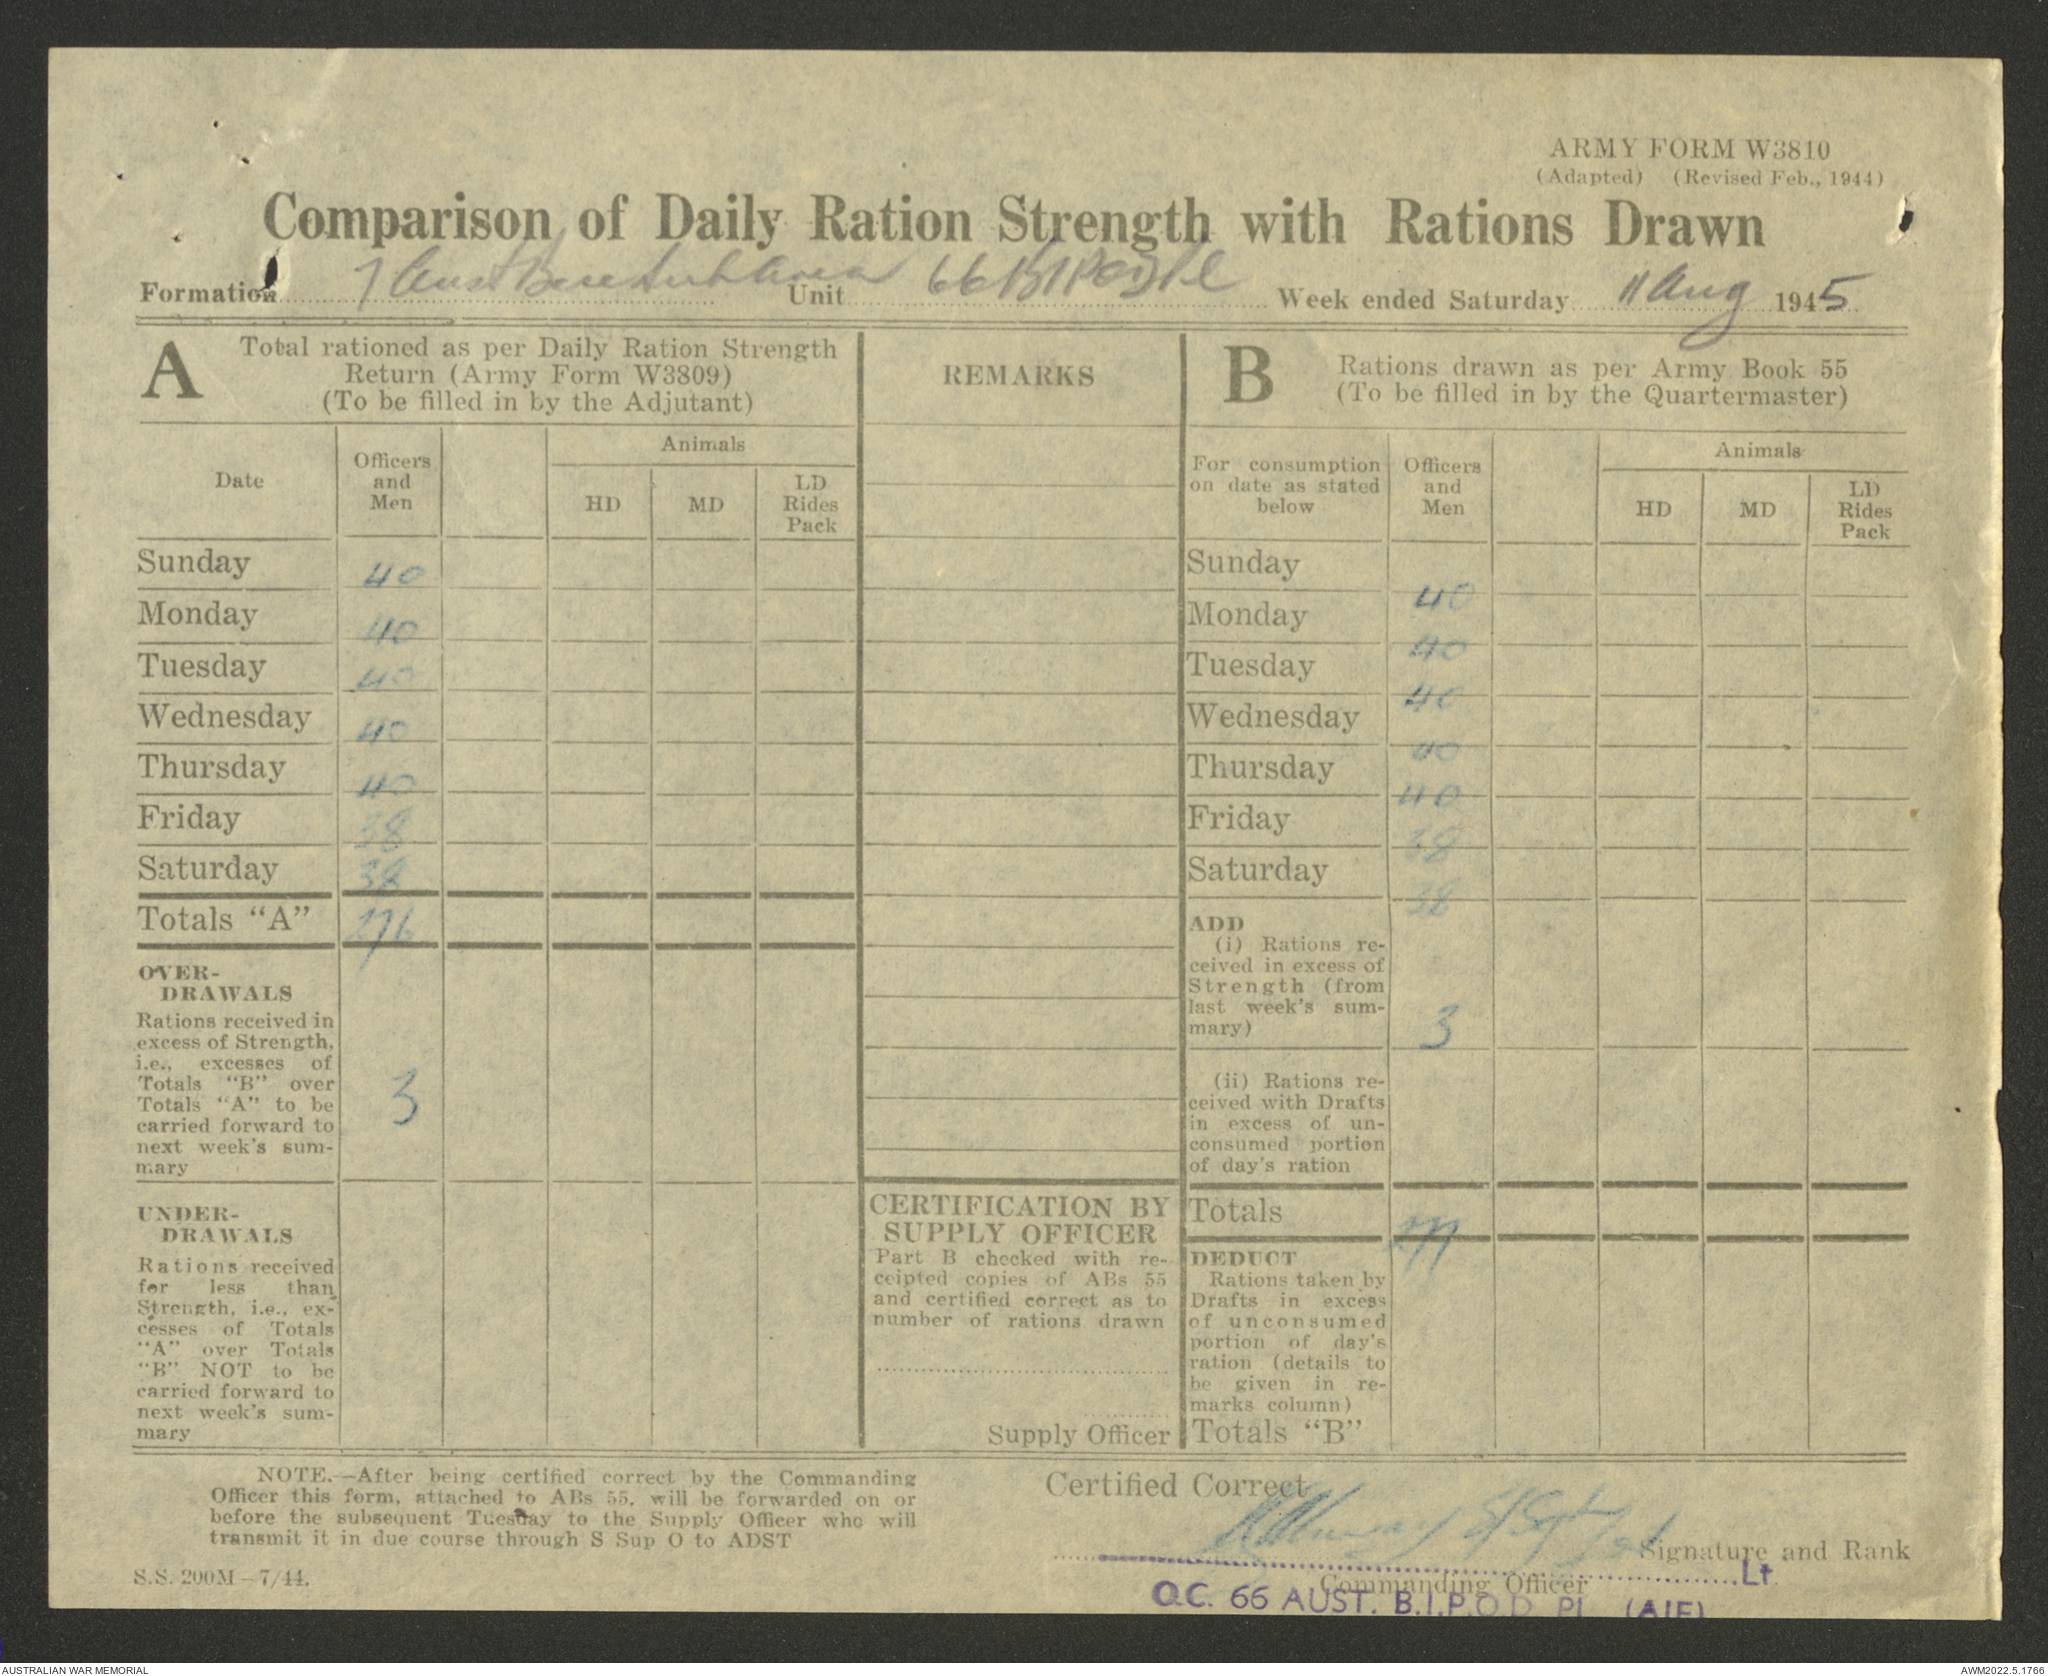 ARMY FORM W3810
(Adapted) (Revised Feb., 1944)
Comparison of Daily Ration Strength with Rations Drawn
Formation 7 Aust Base Sub Area Unit 66 BIPOD Pl Week ended Saturday 11 Aug 1945
A Total rationed as per Daily Ration Strength
Return (Army Form W3809)
(To be filled in by the Adjutant)
Date
Officers
and
Men
Animals
HD
MD
LD
Rides
Pack
Sunday 40
Monday 40
Tuesday 40
Wednesday 40
Thursday 40
Friday 38
Saturday 38
Totals "A" 276
OVER-
DRAWALS
Rations received in
excess of Strength,
i.e., excesses of
Totals "B" over
Totals "A" to be
carried forward to
next week's sum-
mary
3
UNDER-
DRAWALS
Rations received
for less than
Strength, i.e., ex-
cesses of Totals
"A" over Totals
"B" NOT to be
carried forward to
next week's sum-
mary
REMARKS
CERTIFICATION BY
SUPPLY OFFICER
Part B checked with re-
ceipted copies of ABs 55
and certified correct as to
number of rations drawn
Supply Officer
B Rations drawn as per Army Book 55
(To be filled in by the Quartermaster)
For consumption
on date as stated
below
Officers
and
Men
Animals
HD
MD
LD
Rides
Pack
Sunday
40
Monday
40
Tuesday
40
Wednesday
40
Thursday
40
Friday
38
Saturday
38
ADD
(i) Rations re-
ceived in excess of
Strength (from
last week's sum-
mary)
3
(ii) Rations re-
ceived with Drafts
in excess of un-
consumed portion
of day's ration
Totals 279
DEDUCT
Rations taken by
Drafts in excess
of unconsumed
portion of day's
ration (details to
be given in re-
marks column)
Totals "B"
NOTE.—After being certified correct by the Commanding
Officer this form, attached to ABs 55, will be forwarded on or
before the subsequent Tuesday to the Supply Officer who will
transmit it in due course through S Sup O to ADST
S.S. 200M—7/44.
Certified Correct
S/Sgt
Signature and Rank
Lt.
Commanding Officer
O.C. 66 AUST. B.I.P.O.D. Pl. (AIF)
AUSTRALIAN WAR MEMORIAL
AWM2022.5.1766